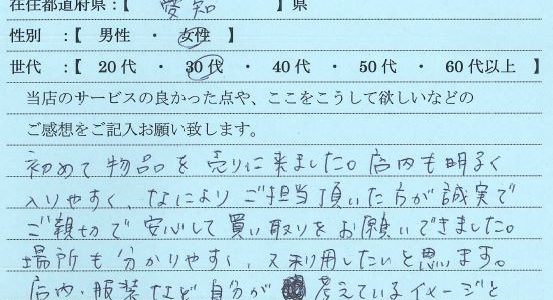 在住都道府県:【 愛知 】県
性別 :【 男性 ・ 女性 】
世代 :【 20代 ・ 30代 ・ 40代 ・ 50代 ・ 60代以上 】
当店のサービスの良かった点や、ここをこうして欲しいなどの
ご感想をご記入お願い致します。
初めて物品を売りに来ました。店内も明るく
入りやすく、なにより ご担当頂いた方が誠実で
ご親切で安心して買い取りをお願いできました。
場所も分かりやすく、又利用したいと思います。
店内・服装など自分が 考えているイメージと